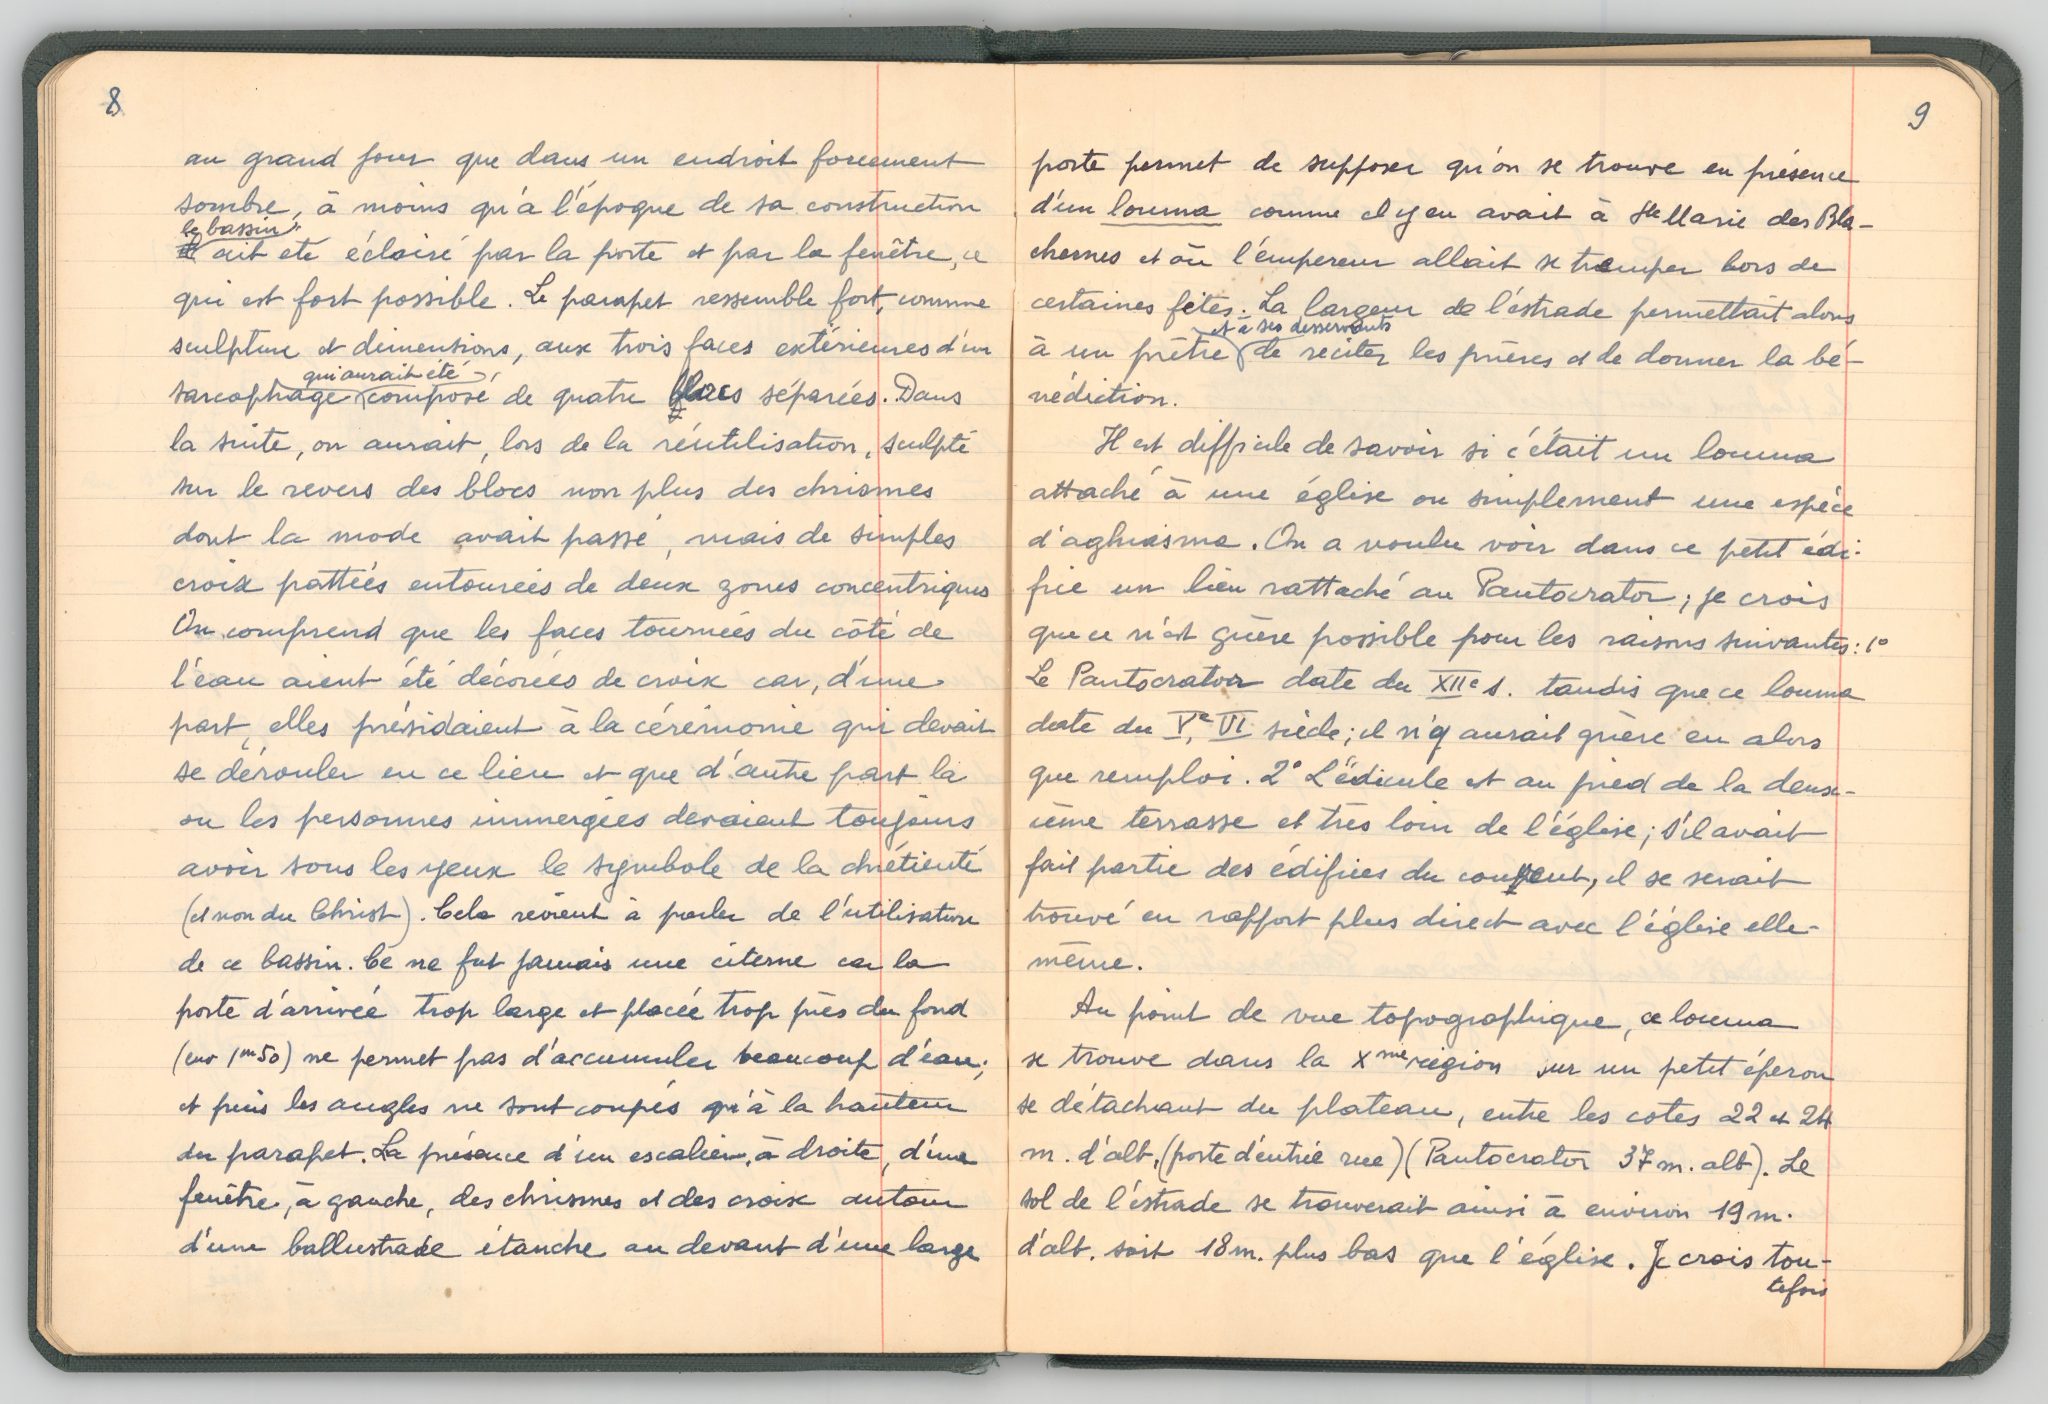 8
au grand jour que dans un endroit forcement
sombre, à moins qu'à l'époque de sa construction
le bassin
ait été éclairé par la porte et par la fenêtre, ce
qui est fort possible. Le parapet ressemble fort, comme
sculpture et dimensions, aux trois faces extérieures d'un
qui aurait été
sarcophage composé de quatre blocs séparées. Dans
la suite, on aurait, lors de la réutilisation, sculpté
sur le revers des blocs non plus des chrismes
dont la mode avait passé, mais de simples
croix pattées entourées de deux zones concentriques
On comprend que les faces tournées du côté de
l'eau aient été décorées de croix car, d'une
part, elles présidaient à la cérémonie qui devait
se dérouler en ce lieu et que d'autre part la
ou les personnes immergées devaient toujours
avoir sous les yeux le symbole de la chrétienté
(et non du Christ). Cela revient à parler de l'utilisation
de ce bassin. Ce ne fut jamais une citerne car la
porte d'arrivée trop large et placée trop près du fond
(env 1m50) ne permet pas d'accumuler beaucoup d'eau;
et puis les angles ne sont coupés qu'à la hauteur
du parapet. La présence d'un escalier, à droite, d'une
fenêtre, à gauche, des chrismes et des croix autour
d'une ballustrade étanche au devant d'une large
9
porte permet de supposer qu'on se trouve en présence
d'un louma comme il y en avait à Ste Marie des Bla-
chernes et où l'empereur allait se tremper lors de
certaines fêtes. La largeur de l'estrade permettait alors
et à ses desservants
à un prêtre de reciter les prières et de donner la bé-
nédiction.
Il est difficile de savoir si c'était un louma
attaché à une église ou simplement une espèce
d'aghiasma. On a voulu voir dans ce petit édi-
fice un lieu rattaché au Pantocrator; je crois
que ce n'est guère possible pour les raisons suivantes: 1°
Le Pantocrator date du XIIe s. tandis que ce louma
date du Ve, VI siècle; il n'y aurait guère eu alors
que remploi. 2° L'édicule est au pied de la deux-
ième terrasse et très loin de l'église; s'il avait
fait partie des édifices du couvent, il se serait
trouvé en rapport plus direct avec l'église elle-
même.
Au point de vue topographique, ce louma
se trouve dans la Xme région sur un petit éperon
se détachant du plateau, entre les cotes 22 et 24
m. d'alt. (porte d'entrée rue) (Pantocrator 37 m. alt). Le
sol de l'estrade se trouverait ainsi à environ 19 m.
d'alt. soit 18 m. plus bas que l'église. Je crois tou-
tefois